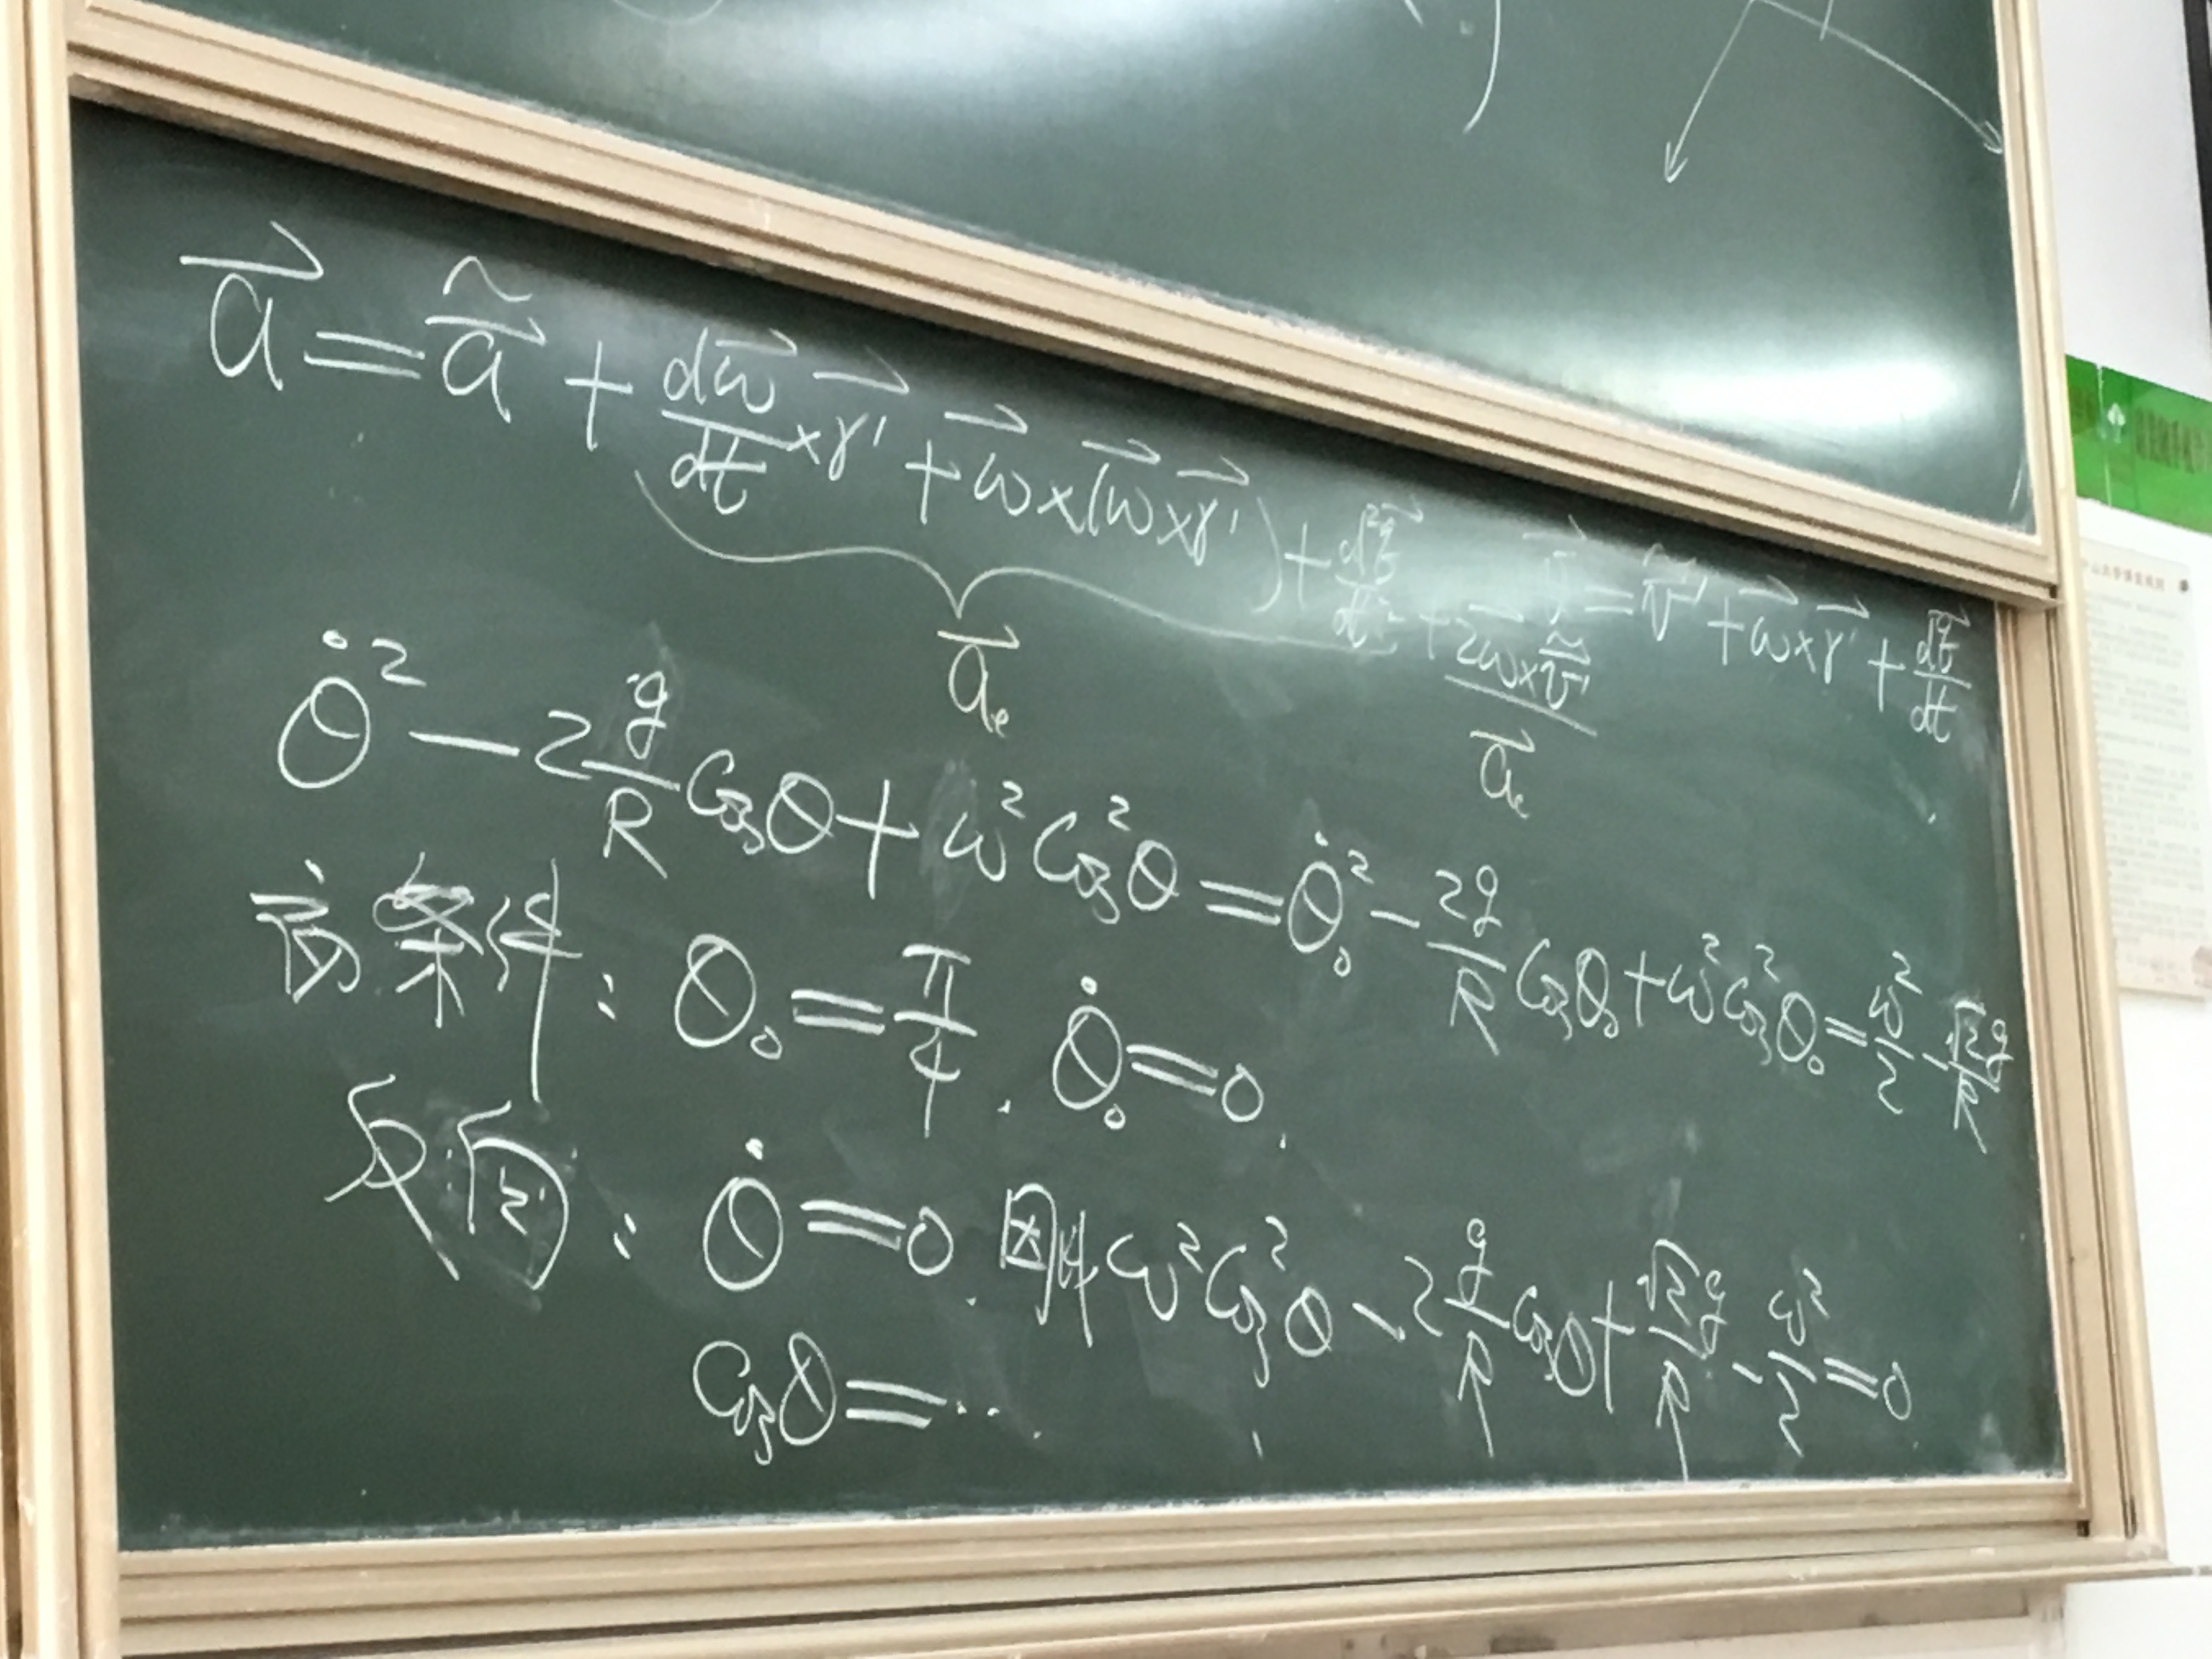 $\vec{a} = \tilde{\vec{a}} + \frac{d\vec{\omega}}{dt} \times \vec{r}' + \vec{\omega} \times (\vec{\omega} \times \vec{r}') + \frac{d^2\vec{}}{dt^2} + 2\vec{\omega} \times \tilde{\vec{v}}'$
$\vec{v} = \tilde{\vec{v}}' + \vec{\omega} \times \vec{r}' + \frac{d\vec{}}{dt}$
$\vec{a}_e$ $\vec{a}_c$
$\dot{\theta}^2 - 2\frac{g}{R}\cos\theta + \omega^2\cos^2\theta = \dot{\theta}_0^2 - \frac{2g}{R}\cos\theta_0 + \omega^2\cos^2\theta_0 = \frac{\omega^2}{2} - \frac{\sqrt{2}g}{R}$
条件: $\theta_0 = \frac{\pi}{4}$. $\dot{\theta}_0 = 0$.
反向: $\dot{\theta} = 0$. 因此 $\omega^2\cos^2\theta - 2\frac{g}{R}\cos\theta + \frac{\sqrt{2}g}{R} - \frac{\omega^2}{2} = 0$
$\cos\theta = \cdots$